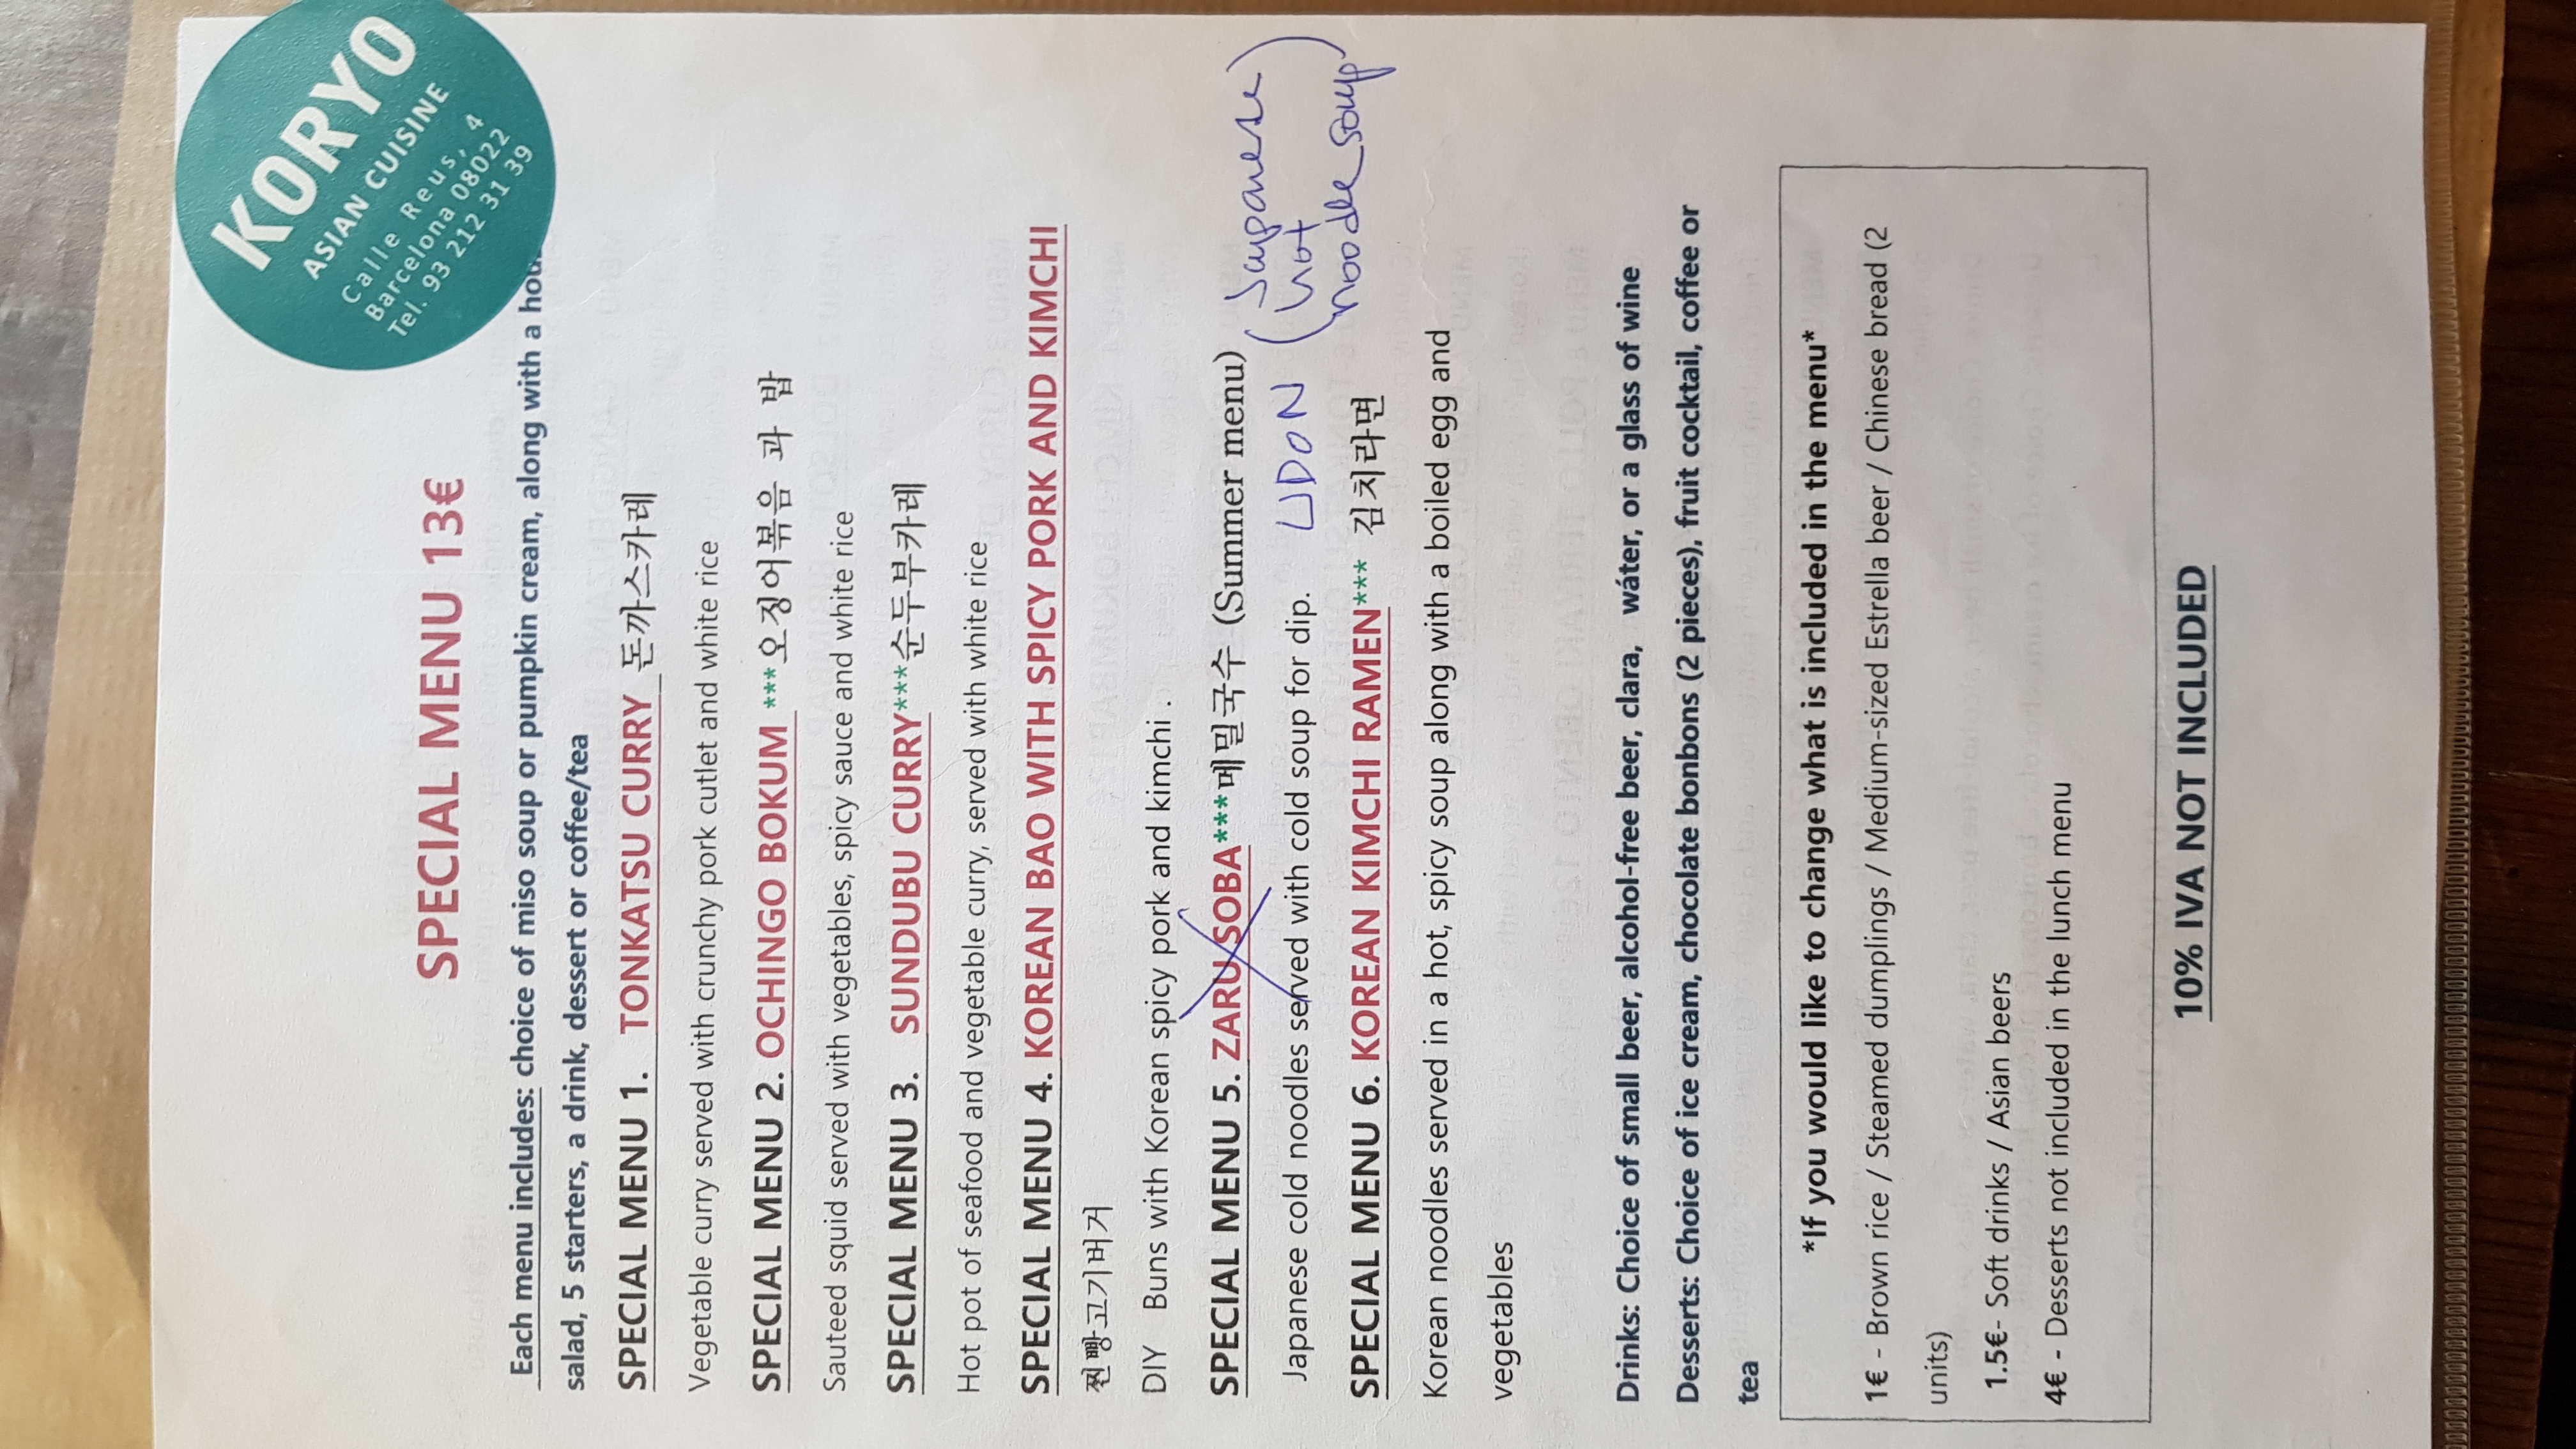 KORYO
ASIAN CUISINE
Calle Reus, 4
Barcelona 08022
Tel. 93 212 31 39
SPECIAL MENU 13€
Each menu includes: choice of miso soup or pumpkin cream, along with a
salad, 5 starters, a drink, dessert or coffee/tea
SPECIAL MENU 1. TONKATSU CURRY 돈까스카레
Vegetable curry served with crunchy pork cutlet and white rice
SPECIAL MENU 2. OCHINGO BOKUM ***오징어볶음 과 밥
Sauteed squid served with vegetables, spicy sauce and white rice
SPECIAL MENU 3. SUNDUBU CURRY***순두부카레
Hot pot of seafood and vegetable curry, served with white rice
SPECIAL MENU 4. KOREAN BAO WITH SPICY PORK AND KIMCHI
찐빵고기버거
DIY Buns with Korean spicy pork and kimchi .
SPECIAL MENU 5. ZARU SOBA***메밀국수 (Summer menu)
Japanese cold noodles served with cold soup for dip. UDON (Japanese hot noodle soup)
SPECIAL MENU 6. KOREAN KIMCHI RAMEN*** 김치라면
Korean noodles served in a hot, spicy soup along with a boiled egg and
vegetables
Drinks: Choice of small beer, alcohol-free beer, clara, wáter, or a glass of wine
Desserts: Choice of ice cream, chocolate bonbons (2 pieces), fruit cocktail, coffee or
tea
*If you would like to change what is included in the menu*
1€ - Brown rice / Steamed dumplings / Medium-sized Estrella beer / Chinese bread (2
units)
1.5€- Soft drinks / Asian beers
4€ - Desserts not included in the lunch menu
10% IVA NOT INCLUDED